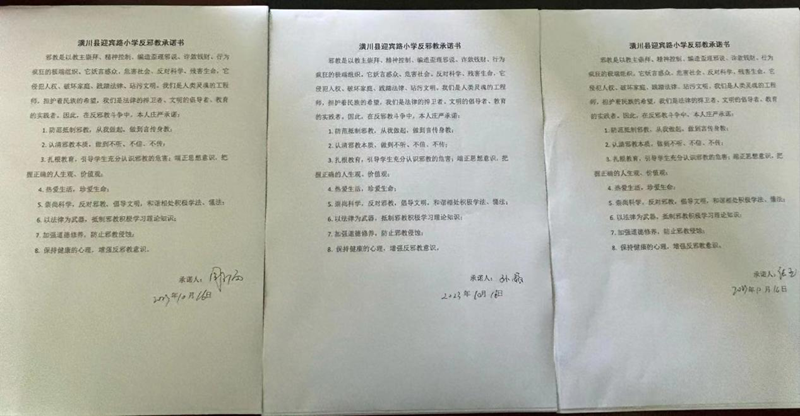 潢川县迎宾路小学反邪教承诺书
邪教是以教主崇拜、精神控制、编造歪理邪说、诈敛钱财、行为
疯狂的极端组织。它妖言惑众、危害社会、反对科学、残害生命。它
侵犯人权、破坏家庭、践踏法律、玷污文明。我们是人类灵魂的工程
师，担护着民族的希望，我们是法律的捍卫者、文明的倡导者、教育
的实践者，因此，在反邪教斗争中，本人庄严承诺：
1.防范抵制邪教，从我做起，做到言传身教；
2.认清邪教本质，做到不听、不信、不传；
3.扎根教育，引导学生充分认识邪教的危害；端正思想意识，把
握正确的人生观、价值观；
4.热爱生活，珍爱生命；
5.崇尚科学，反对邪教，倡导文明，和谐相处积极学法、懂法；
6.以法律为武器，抵制邪教积极学习理论知识；
7.加强道德修养，防止邪教侵蚀；
8.保持健康的心理，增强反邪教意识。
承诺人：
2023年10月16日
潢川县迎宾路小学反邪教承诺书
邪教是以教主崇拜、精神控制、编造歪理邪说、诈敛钱财、行为
疯狂的极端组织。它妖言惑众、危害社会、反对科学、残害生命。它
侵犯人权、破坏家庭、践踏法律、玷污文明。我们是人类灵魂的工程
师，担护着民族的希望，我们是法律的捍卫者、文明的倡导者、教育
的实践者，因此，在反邪教斗争中，本人庄严承诺：
1.防范抵制邪教，从我做起，做到言传身教；
2.认清邪教本质，做到不听、不信、不传；
3.扎根教育，引导学生充分认识邪教的危害；端正思想意识，把
握正确的人生观、价值观；
4.热爱生活，珍爱生命；
5.崇尚科学，反对邪教，倡导文明，和谐相处积极学法、懂法；
6.以法律为武器，抵制邪教积极学习理论知识；
7.加强道德修养，防止邪教侵蚀；
8.保持健康的心理，增强反邪教意识。
承诺人：孙
2023年10月16日
潢川县迎宾路小学反邪教承诺书
邪教是以教主崇拜、精神控制、编造歪理邪说、诈敛钱财、行为
疯狂的极端组织。它妖言惑众、危害社会、反对科学、残害生命。它
侵犯人权、破坏家庭、践踏法律、玷污文明。我们是人类灵魂的工程
师，担护着民族的希望，我们是法律的捍卫者、文明的倡导者、教育
的实践者，因此，在反邪教斗争中，本人庄严承诺：
1.防范抵制邪教，从我做起，做到言传身教；
2.认清邪教本质，做到不听、不信、不传；
3.扎根教育，引导学生充分认识邪教的危害；端正思想意识，把
握正确的人生观、价值观；
4.热爱生活，珍爱生命；
5.崇尚科学，反对邪教，倡导文明，和谐相处积极学法、懂法；
6.以法律为武器，抵制邪教积极学习理论知识；
7.加强道德修养，防止邪教侵蚀；
8.保持健康的心理，增强反邪教意识。
承诺人：
2023年10月16日